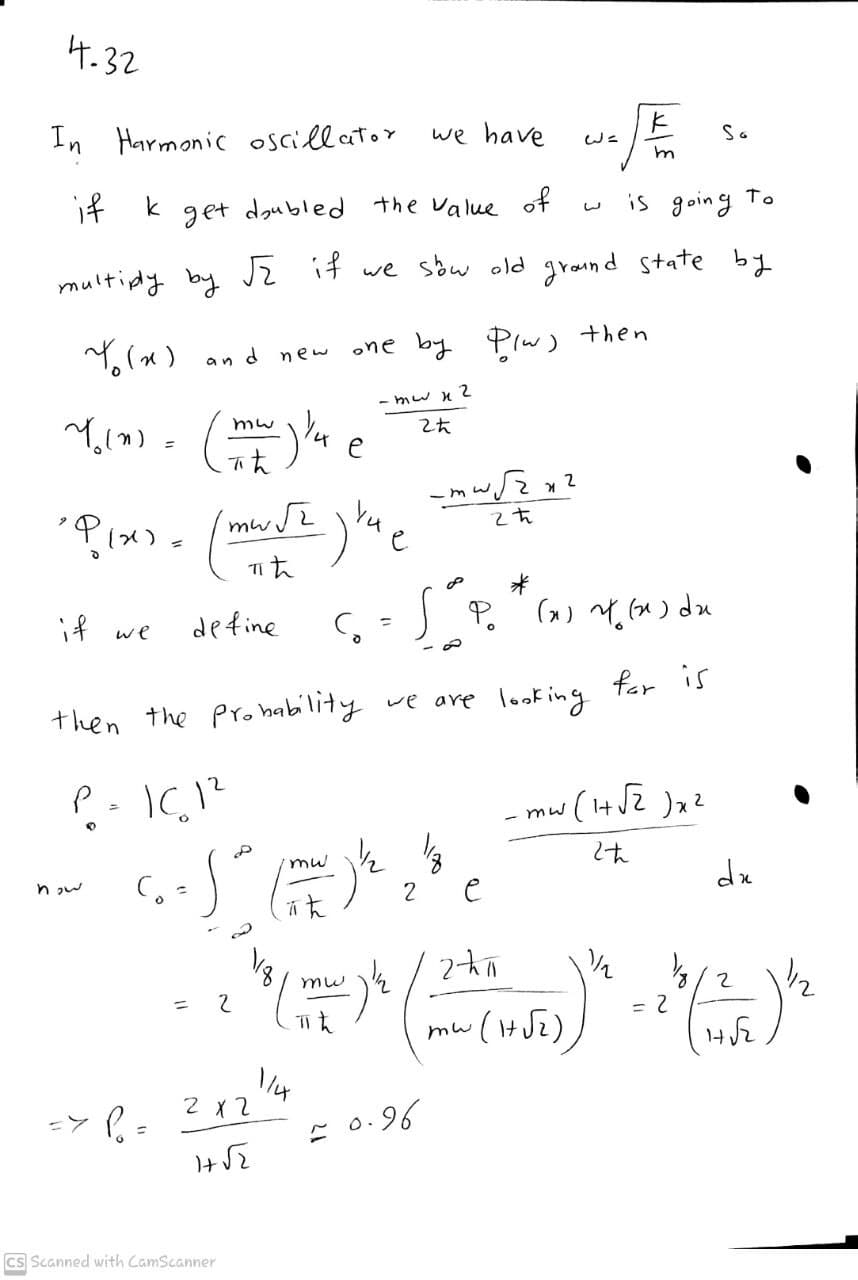 4.32
In Harmonic oscillator we have ω = √(k/m) So
if k get doubled the value of ω is going To
multiply by √2 if we show old ground state by
Ψ₀(x) and new one by Φ₀(ω) then
Ψ₀(x) = (mω/πħ)^1/4 e^(-mωx²/2ħ)
, Φ₀(x) = (mω√2/πħ)^1/4 e^(-mω√2x²/2ħ)
if we define C₀ = ∫_-∞^∞ Φ₀*(x) Ψ₀(x) dx
then the probability we are looking for is
P₀ = |C₀|²
now C₀ = ∫_-∞^∞ (mω/πħ)^1/2 2^1/8 e^(-mω(1+√2)x²/2ħ) dx
= 2^1/8 (mω/πħ)^1/2 (2ħπ/mω(1+√2))^1/2 = 2^1/8 (2/1+√2)^1/2
=> P₀ = 2×2^1/4/1+√2 ≃ 0.96
CS Scanned with CamScanner